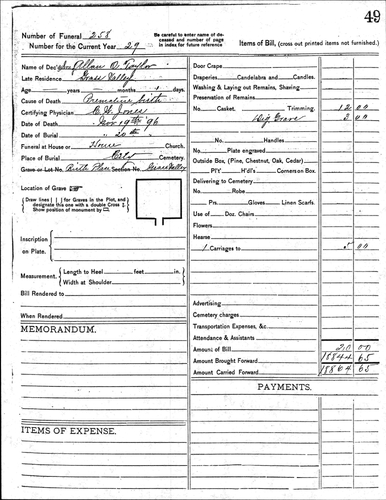 49
Number of Funeral 258
Number for the Current Year 29
Be carefully to enter name of de-
ceased and number of page
in index for future reference
Items of Bill, (cross out printed items not furnished.)
Name of Dec'd Allan O. Taylor
Late Residence Grass Valley
Age years months days.
Cause of Death Premature birth
Certifying Physician Jones
Date of Death Nov 19th 96
Date of Burial " 20th
Funeral at House or Home Church.
Place of Burial Cemetery.
Grave or Lot No. Section No. Grass Valley
Location of Grave
Draw lines for Graves in the Plot, and
designate this one with a double Cross
Show position of monument by
Inscription
on Plate.
Measurement. Length to Heel feet in.
Width at Shoulder
Bill Rendered to
When Rendered
MEMORANDUM.
ITEMS OF EXPENSE.
Door Crape
Draperies, Candelabra and Candles.
Washing & Laying out Remains, Shaving
Preservation of Remains
No. Casket, Trimming. 12 00
Dig Grave 3 00
No. Handles
Plate engraved
Outside Box, (Pine, Chestnut, Oak, Cedar)
PTY H'dl's Corners on Box.
Delivering to Cemetery
No. Robe
Prs. Gloves Linen Scarfs.
Use of Doz. Chairs
Flowers
Hearse
1 Carriages to 5 00
Advertising
Cemetery charges
Transportation Expenses, &c.
Attendance & Assistants
Amount of Bill 20 00
Amount Brought Forward 18844 65
Amount Carried Forward 18864 65
PAYMENTS.